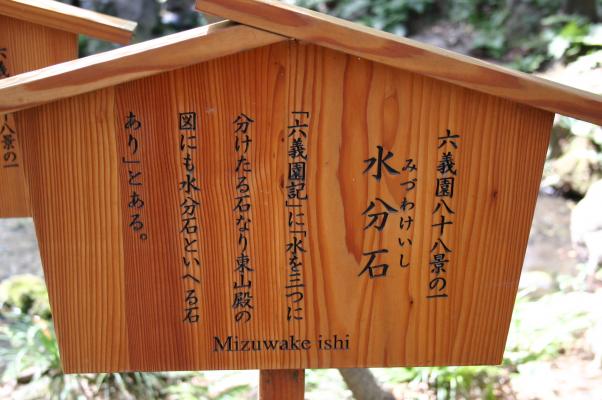 六義園八十八景の一
みづわけいし
水分石
「六義園記」に「水を三つに
分けたる石なり東山殿の
図にも水分石といへる石
あり」とある。
Mizuwake ishi
八景の一